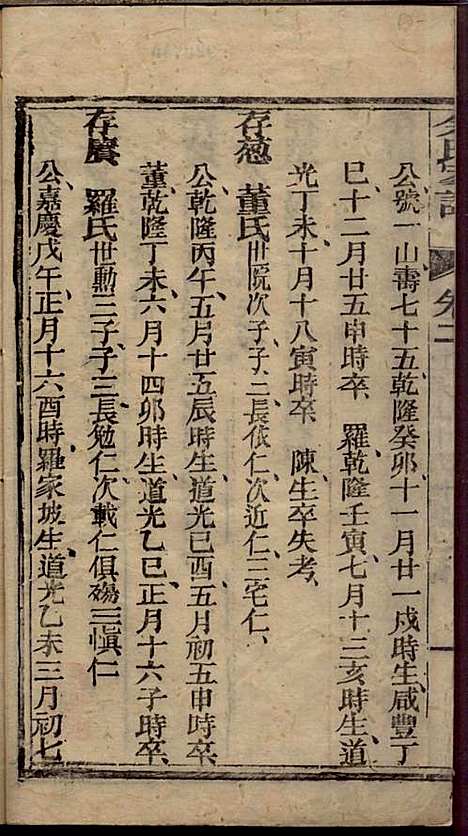 氏家譜
卷二
一
公號一山壽七十五乾隆癸卯十一月廿一戌時生咸豐丁
巳十二月廿五申時卒 羅乾隆壬寅七月十三亥時生道
光丁未十月十八寅時卒 陳生卒失考
存葱 董氏世院次子子三長依仁次近仁三宅仁
公乾隆丙午五月廿五辰時生道光己酉五月初五申時卒
董乾隆丁未六月十四卯時生道光乙巳正月十六子時卒
存賡 羅氏世勳三子子三長勉仁次載仁俱殤三愼仁
公嘉慶戊午正月十六酉時羅家坡生道光乙未三月初七